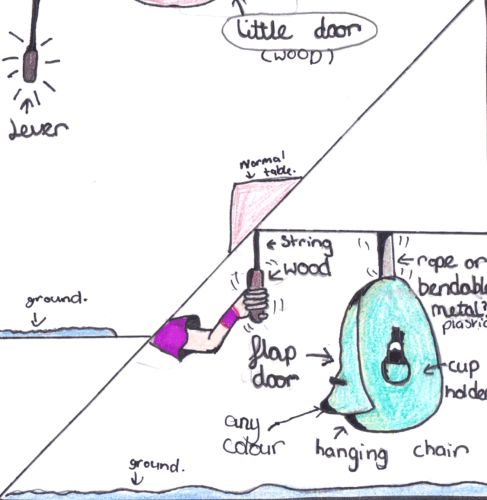 little door
(wood)
Lever
Normal
table.
String
wood
rope or
bendable
metal?
plastic
ground.
flap
door
cup
holder
any
colour
hanging chair
ground.